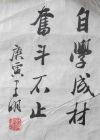 自學成材
奮斗不止
庚寅